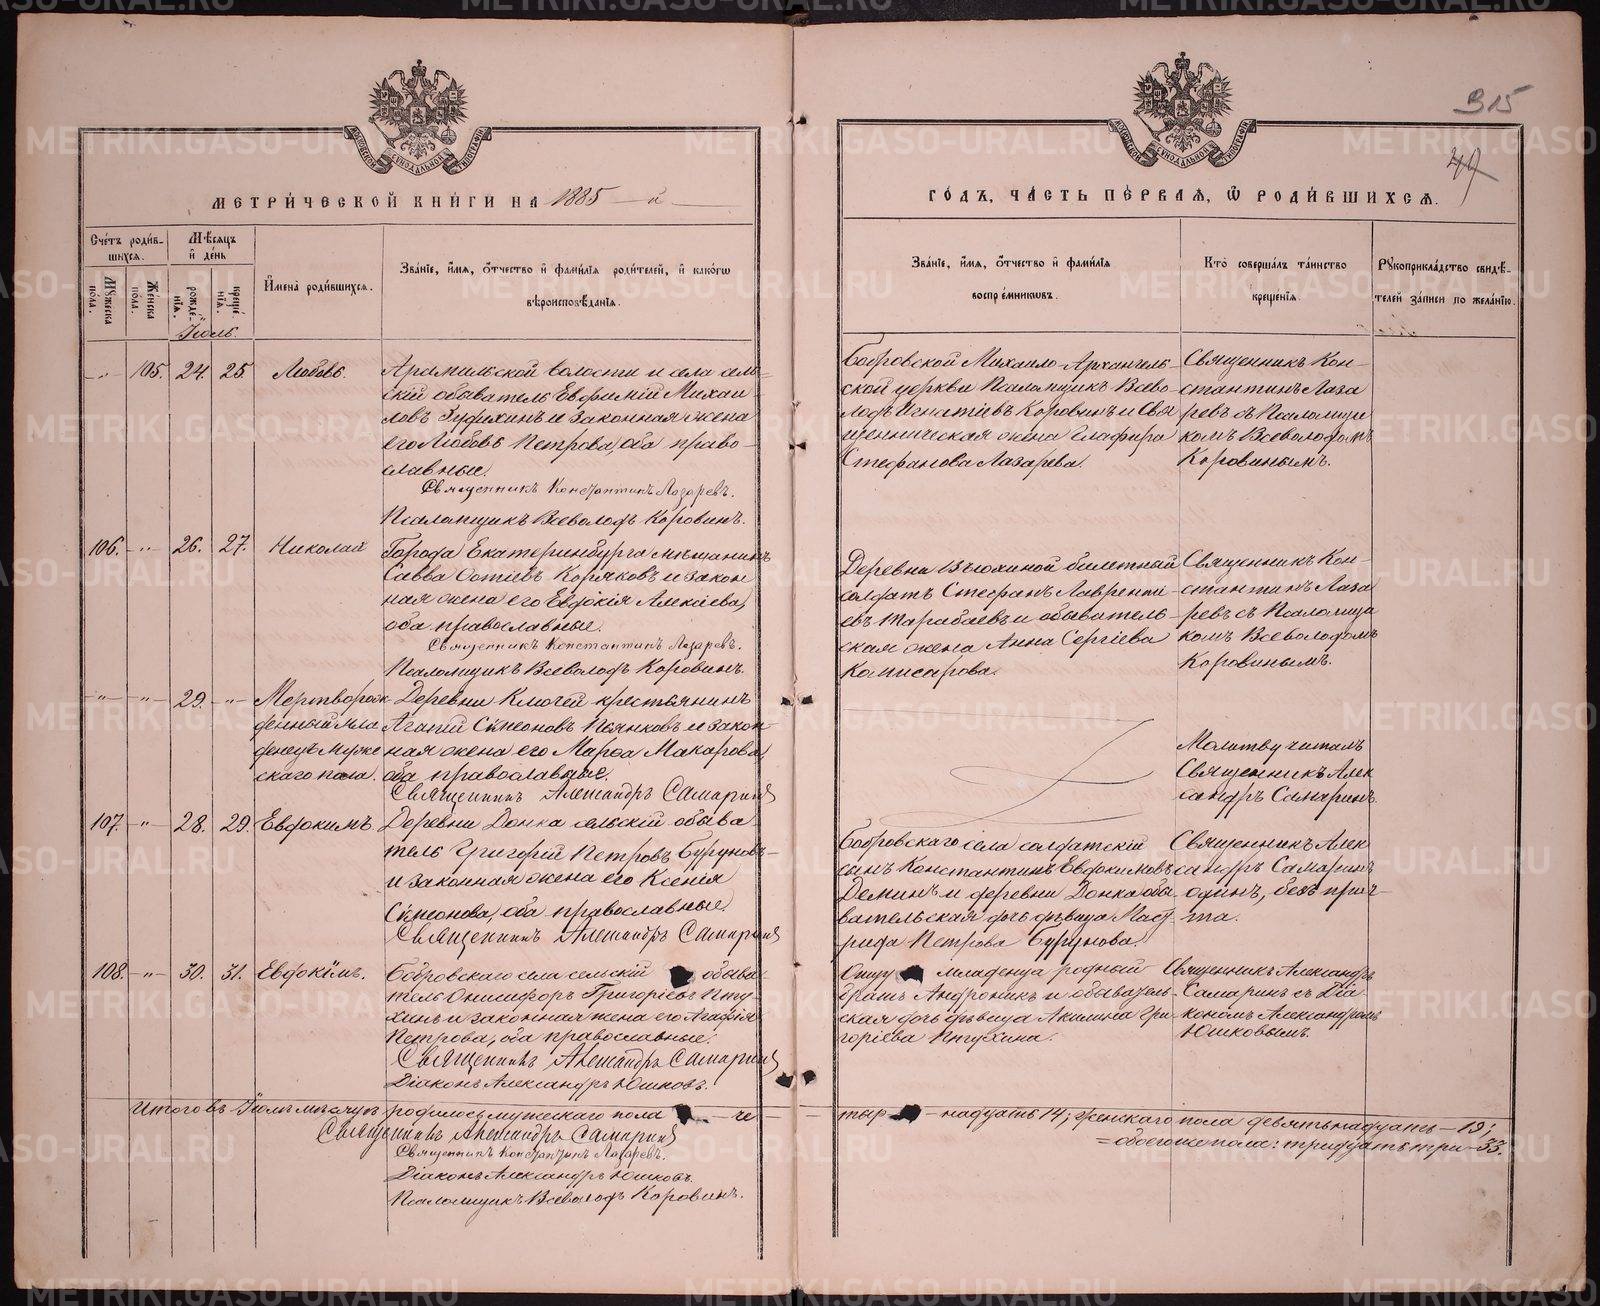 315
49
МЕТРИ́ЧЕСКОЙ КНИ́ГИ НА 1885 — й —
ГО́ДЪ, ЧА́СТЬ ПЕ́РВАЯ, Ѿ РОДИ́ВШИХСЯ.
Сче́тъ роди́в-
шихся.
Му́жеска пола.
Же́нска пола.
Мѣ́сяцъ
и́ де́нь
рожде́-
нія.
креще́-
нія.
И҆мена̀ роди́вшихся.
Зва́ніе, и҆́мя, о҆́тчество и҆ фами́лія роди́телей, и҆ како́гѡ
вѣроисповѣ́данія.
Зва́ніе, и҆́мя, о҆́тчество и҆ фами́лія
воспрее́мникѡвъ.
Кто̀ соверша́лъ та́инство
креще́нія.
Рꙋкоприкла́дство свидѣ́-
телей за́писи по жела́нію.
Іюль.
— " — 105. 24. 25. Любовь.
Арамильской волости и села сель-
скій обыватель Евфимій Михаи
ловъ и законная жена
его Любовь Петрова, оба право-
славные.
Священникъ Константинъ Лазаревъ.
Псаломщикъ Всеволодъ Коровинъ.
Бобровской Михаило-Архангель-
ской церкви Псаломщикъ Всево
лодъ Игнатіевъ Коровинъ и Свя
щенническая жена Глафира
Стефанова Лазарева.
Священникъ Кон-
стантинъ Лаза
ревъ съ Псаломщи
комъ Всеволодомъ
Коровинымъ.
106. — " — 26. 27. Николай
Города Екатеринбурга мѣщанинъ
Савва Коряковъ и закон
ная жена его Евдокія Алексіева,
оба православные.
Священникъ Константинъ Лазаревъ.
Псаломщикъ Всеволодъ Коровинъ.
Деревни Вьюхиной билетный
солдатъ Стефанъ Лавренти
евъ Тарабаевъ и обыватель-
ская жена Анна Сергіева
Комисарова.
Священникъ Кон-
стантинъ Лаза
ревъ съ Псаломщи
комъ Всеволодомъ
Коровинымъ.
— " — — " — 29. — " — Мертворож
денный мла
денецъ муже
скаго пола.
Деревни Ключей крестьянинъ
Агапій Сѵмеоновъ Пьянковъ и закон-
ная жена его Марѳа Макарова,
оба православные.
Священникъ Александръ Самаринъ
Молитву читалъ
Священникъ Алек
сандръ Самаринъ
107. — " — 28. 29. Евдокимъ.
Деревни Донка сельскій обыва
тель Григорій Петровъ Буруновъ
и законная жена его Ксенія
Сѵмеонова, оба православные.
Священникъ Александръ Самаринъ
Бобровскаго села солдатскій
сынъ Константинъ Евдокимовъ
Деминъ и деревни Донка обы
вательская дочь дѣвица
Петрова Бурунова.
Священникъ Алек
сандръ Самаринъ
одинъ, безъ прич-
та.
108. — " — 30. 31. Евдокімъ.
Бобровскаго села сельскій обыва
тель Онисифоръ Григоріевъ Пту-
хинъ и законная жена его Агафія
Петрова, оба православные.
Священникъ Александръ Самаринъ
Діаконъ Александръ Юшковъ.
Отцу младенца родный
братъ Андроникъ и обыватель-
ская дочь дѣвица Акилина Гри
горіева Птухина.
Священникъ Александръ
Самаринъ съ Діа-
кономъ Александромъ
Юшковымъ.
Итого въ Іюлѣ мѣсяцѣ родилось мужескаго пола — че — тыр — надцать 14; женскаго пола девятьнадцать — 19;
= обоего же пола: тридцать три — 33.
Священникъ Александръ Самаринъ
Священникъ Константинъ Лазаревъ.
Діаконъ Александръ Юшковъ.
Псаломщикъ Всеволодъ Коровинъ.
METRIKI.GASO-URAL.RU